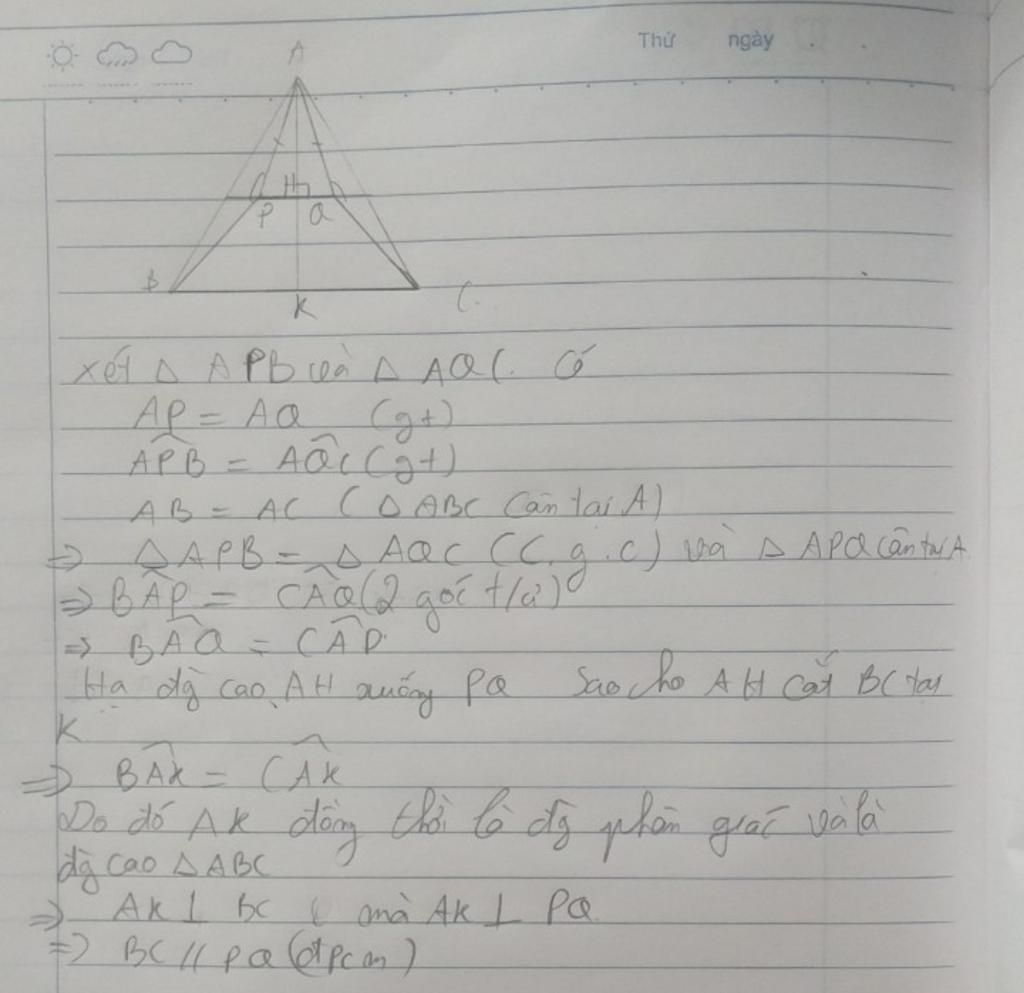 Thứ ngày
A
H
P Q
B K C
xét △ APB và △ AQC. Có
AP = AQ (gt)
APB̂ = AQ̂C (gt)
AB = AC (△ ABC Cân tại A)
=> △ APB = △ AQC (C.g.c) và △ APQ cân tại A
=> BÂP = CÂQ (2 góc t/ứ)
=> BÂQ = CÂP.
Hạ đg cao AH xuống PQ Sao cho AH cắt BC tại
K
=> BÂK = CÂK
Do đó AK đồng thời là đg phân giác và là
đg cao △ABC
=> AK ⊥ BC mà AK ⊥ PQ
=> BC // PQ (đpcm)